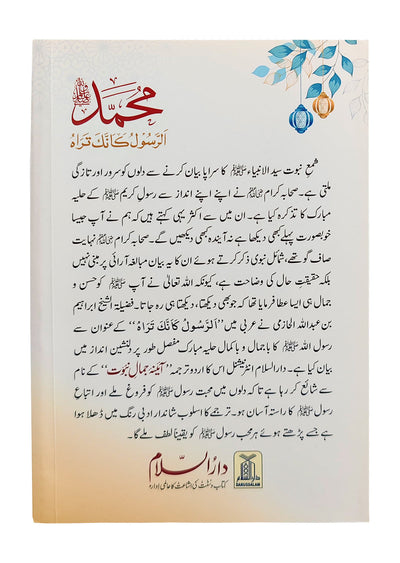 محمد ﷺ
اَلرَّسُوْلُ كَانَّكَ تَرَاهُ
شمعِ نبوت سید الانبیاء ﷺ کا سراپا بیان کرنے سے دلوں کو سرور اور تازگی
ملتی ہے۔ صحابہ کرام رضی اللہ عنہم نے اپنے اپنے انداز سے رسولِ کریم ﷺ کے حلیہ
مبارک کا تذکرہ کیا ہے۔ ان میں سے اکثر یہی کہتے ہیں کہ ہم نے آپ جیسا
خوبصورت پہلے بھی دیکھا ہے نہ آیندہ کبھی دیکھیں گے۔ صحابہ کرام رضی اللہ عنہم نہایت
صاف گو تھے، شمائل نبوی ذکر کرتے ہوئے ان کا یہ بیان مبالغہ آرائی پر مبنی نہیں
بلکہ حقیقتِ حال کی وضاحت ہے، کیونکہ اللہ تعالیٰ نے آپ ﷺ کو حسن و
جمال ہی ایسا عطا فرمایا تھا کہ جو بھی دیکھتا، دیکھتا ہی رہ جاتا۔ فضیلۃ الشیخ ابراہیم
بن عبداللہ الحازمی نے عربی میں "اَلرَّسُوْلُ كَانَّكَ تَرَاهُ" کے عنوان سے
رسول اللہ ﷺ کا باجمال و باکمال حلیہ مبارک مفصل طور پر دلنشین انداز میں
بیان کیا ہے۔ دارالسلام انٹرنیشنل اس کا اردو ترجمہ "آئینۂ جمالِ نبوت" کے نام
سے شائع کر رہا ہے تاکہ دلوں میں محبتِ رسول ﷺ کو فروغ ملے اور اتباعِ
رسول ﷺ کا راستہ آسان ہو۔ ترجمے کا اسلوب شاندار ادبی رنگ میں ڈھلا ہوا
ہے جسے پڑھتے ہوئے ہر محب رسول ﷺ کو یقیناً لطف ملے گا۔
دارُالسّلام
کتاب و سنّت کی اشاعت کا عالمی ادارہ
دارالسلام
DARUSSALAM